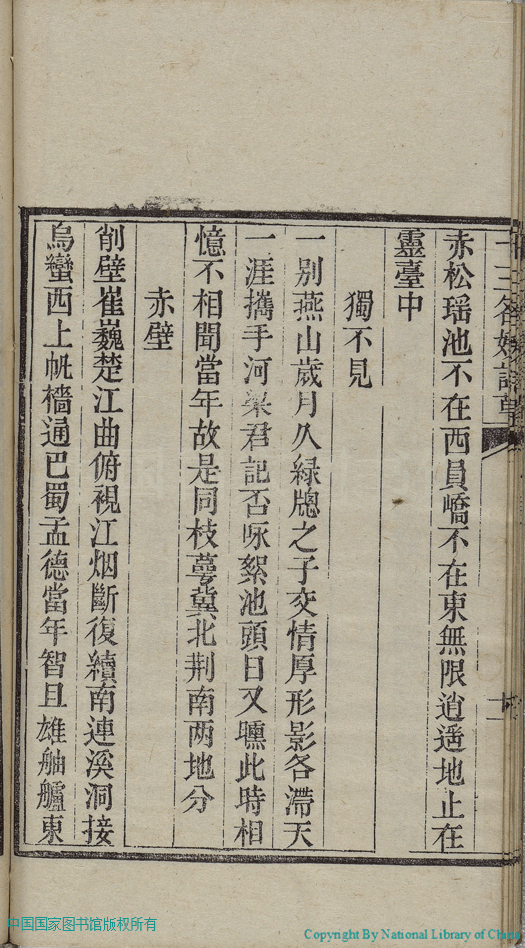 十三名媛詩草
赤松瑶池不在西員嶠不在東無限逍遥地止在
靈臺中
獨不見
一別燕山歲月久綠牕之子交情厚形影各滯天
一涯攜手河梁君記否咏絮池頭日又曛此時相
憶不相聞當年故是同枝蕚冀北荆南两地分
赤壁
削壁崔巍楚江曲俯視江烟斷復續南連溪洞接
烏蠻西上帆檣通巴蜀孟德當年智且雄舳艫東
中国国家图书馆版权所有
Copyright By National Library of China